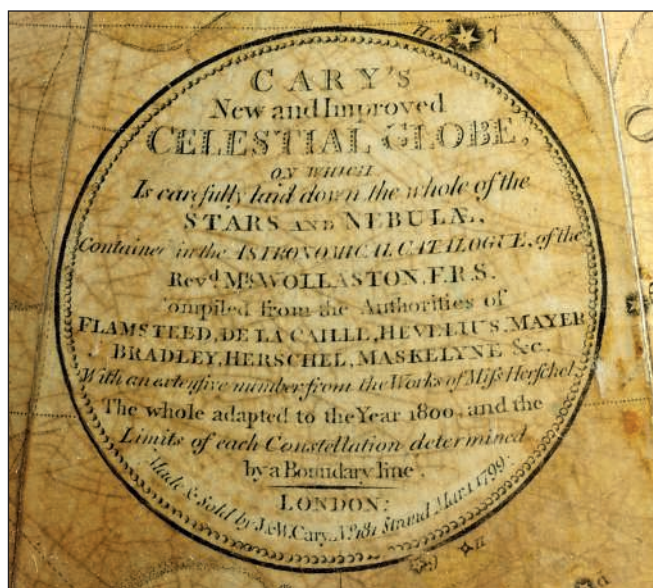 H 18 7
CARY'S
New and Improved
CELESTIAL GLOBE,
ON WHICH
Is carefully laid down the whole of the
STARS AND NEBULÆ,
Contained in the ASTRONOMICAL CATALOGUE, of the
Revd. Mr. WOLLASTON, F.R.S.
Compiled from the Authorities of
FLAMSTEED, DE LA CAILLE, HEVELIUS, MAYER
BRADLEY, HERSCHEL, MASKELYNE &c.
With an extensive number from the Works of Miſs Herschel,
The whole adapted to the Year 1800, and the
Limits of each Constellation determined
by a Boundary line.
LONDON:
Made & Sold by J & W. Cary, No. 181 Strand Mar. 1 1799.